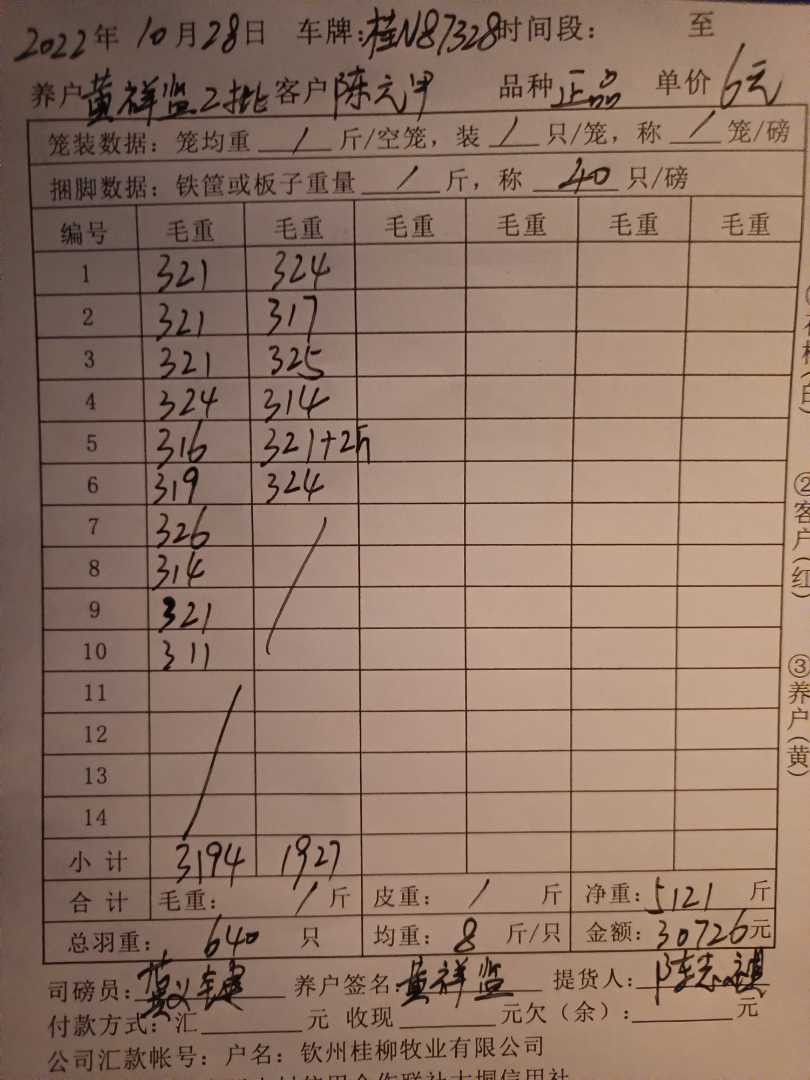 2022年10月28日 车牌:桂N87328时间段: 至
养户黄祥监2批客户陈元甲 品种正品 单价6元
笼装数据: 笼均重 / 斤/空笼, 装 / 只/笼, 称 / 笼/磅
捆脚数据: 铁筐或板子重量 / 斤, 称 40 只/磅
编号 毛重 毛重 毛重 毛重 毛重 毛重
1 321 324
2 321 317
3 321 325
4 324 314
5 316 321+2斤
6 319 324
7 326
8 314
9 321
10 311
11
12
13
14
小计 3194 1927
合计 毛重: / 斤 皮重: / 斤 净重:5121 斤
总羽重: 640 只 均重: 8 斤/只 金额:30726元
司磅员: 养户签名:黄祥监 提货人:陈志
付款方式: 汇 元 收现 元欠(余): 元
公司汇款帐号: 户名: 钦州桂柳牧业有限公司
信用合作联社大垌信用社
②客户(红)
③养户(黄)